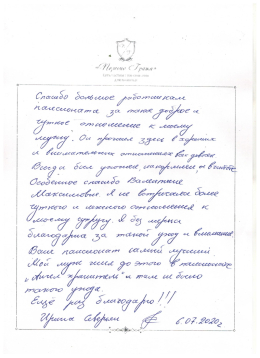 Спасибо большое работникам
пансионата за такое доброе и
чуткое отношение к моему
мужу. Он прожил здесь в хороших
и внимательных отношениях
Всегда был ухожен накормлен и
Особенное спасибо Валентине
Максимовне. Я не встречала более
чуткого и отношения к
моему супругу. Я без мерно
благодарна за такой уход и внимание.
Ваш пансионат самый лучший
Мой муж жил до этого в пансионатах
"Ангел хранитель" и там не было
такого ухода.
Ещё раз благодарю!!!
Ирина 6.07.2020г